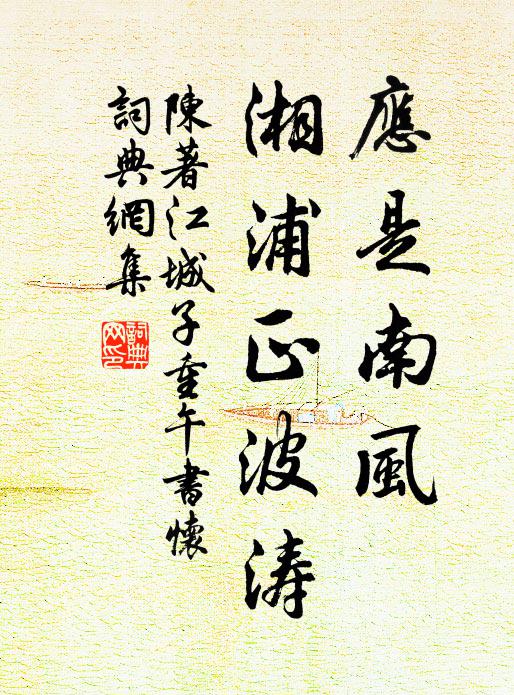 應是南風
湘浦正波涛
陳著江城子重午書懷
詞典網集
詞典網印